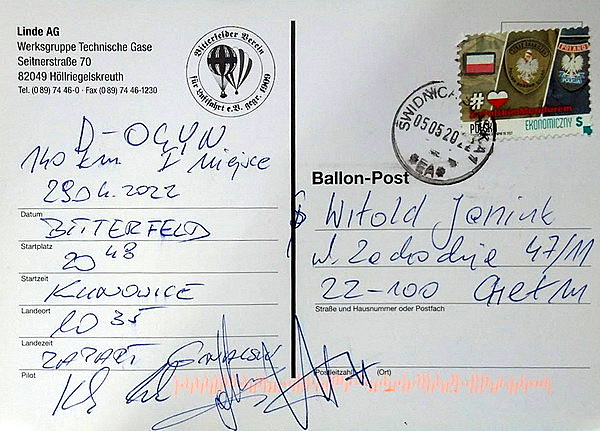 Linde AG
Werksgruppe Technische Gase
Seitnerstraße 70
82049 Höllriegelskreuth
Tel. (0 89) 74 46-0 · Fax (0 89) 74 46-1230
Bitterfelder Verein
für Luftfahrt e.V. gegr. 1909
D-OGYN
140 km I miejsce
29.04.2022
Datum
BITTERFELD
Startplatz
20 48
Startzeit
KLINOWICE
Landeort
10 35
Landezeit
ZAPART
Pilot
POLAND
POLICJA
#
POLSKA
EKONOMICZNY S
ŚWIDNICA
05 05 20
Ballon-Post
Witold Janiuk
ul. Zachodnia 47/11
22-100 Chełm
Straße und Hausnummer oder Postfach
Postleitzahl
(Ort)